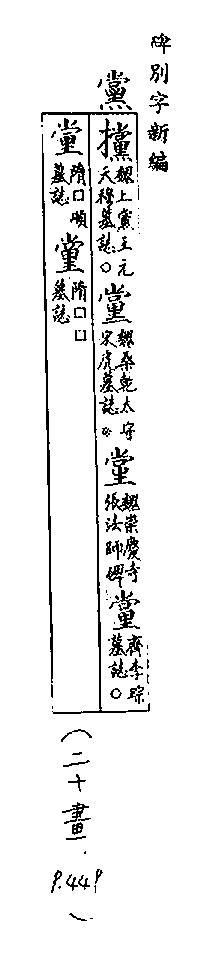 碑別字新編
黨
攩魏上黨王元天穆墓誌○黨魏桑乾太守宋虎墓誌○黨魏崇慶寺張法師碑黨齊李琮墓誌○
黨隋口順墓誌黨隋口口墓誌
(二十畫.
P.449)